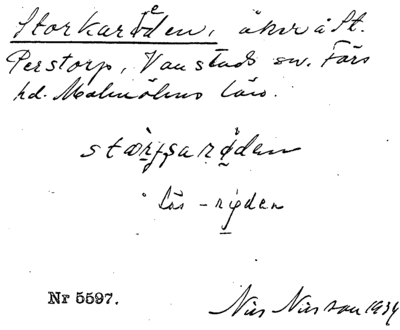 Storkaråden, åker å St.
Perstorp, Vanstads sn. Färs
hd. Malmöhus län.
stærɟsaråden
läs - ryden
Nr 5597.
Nils Nilsson 1934